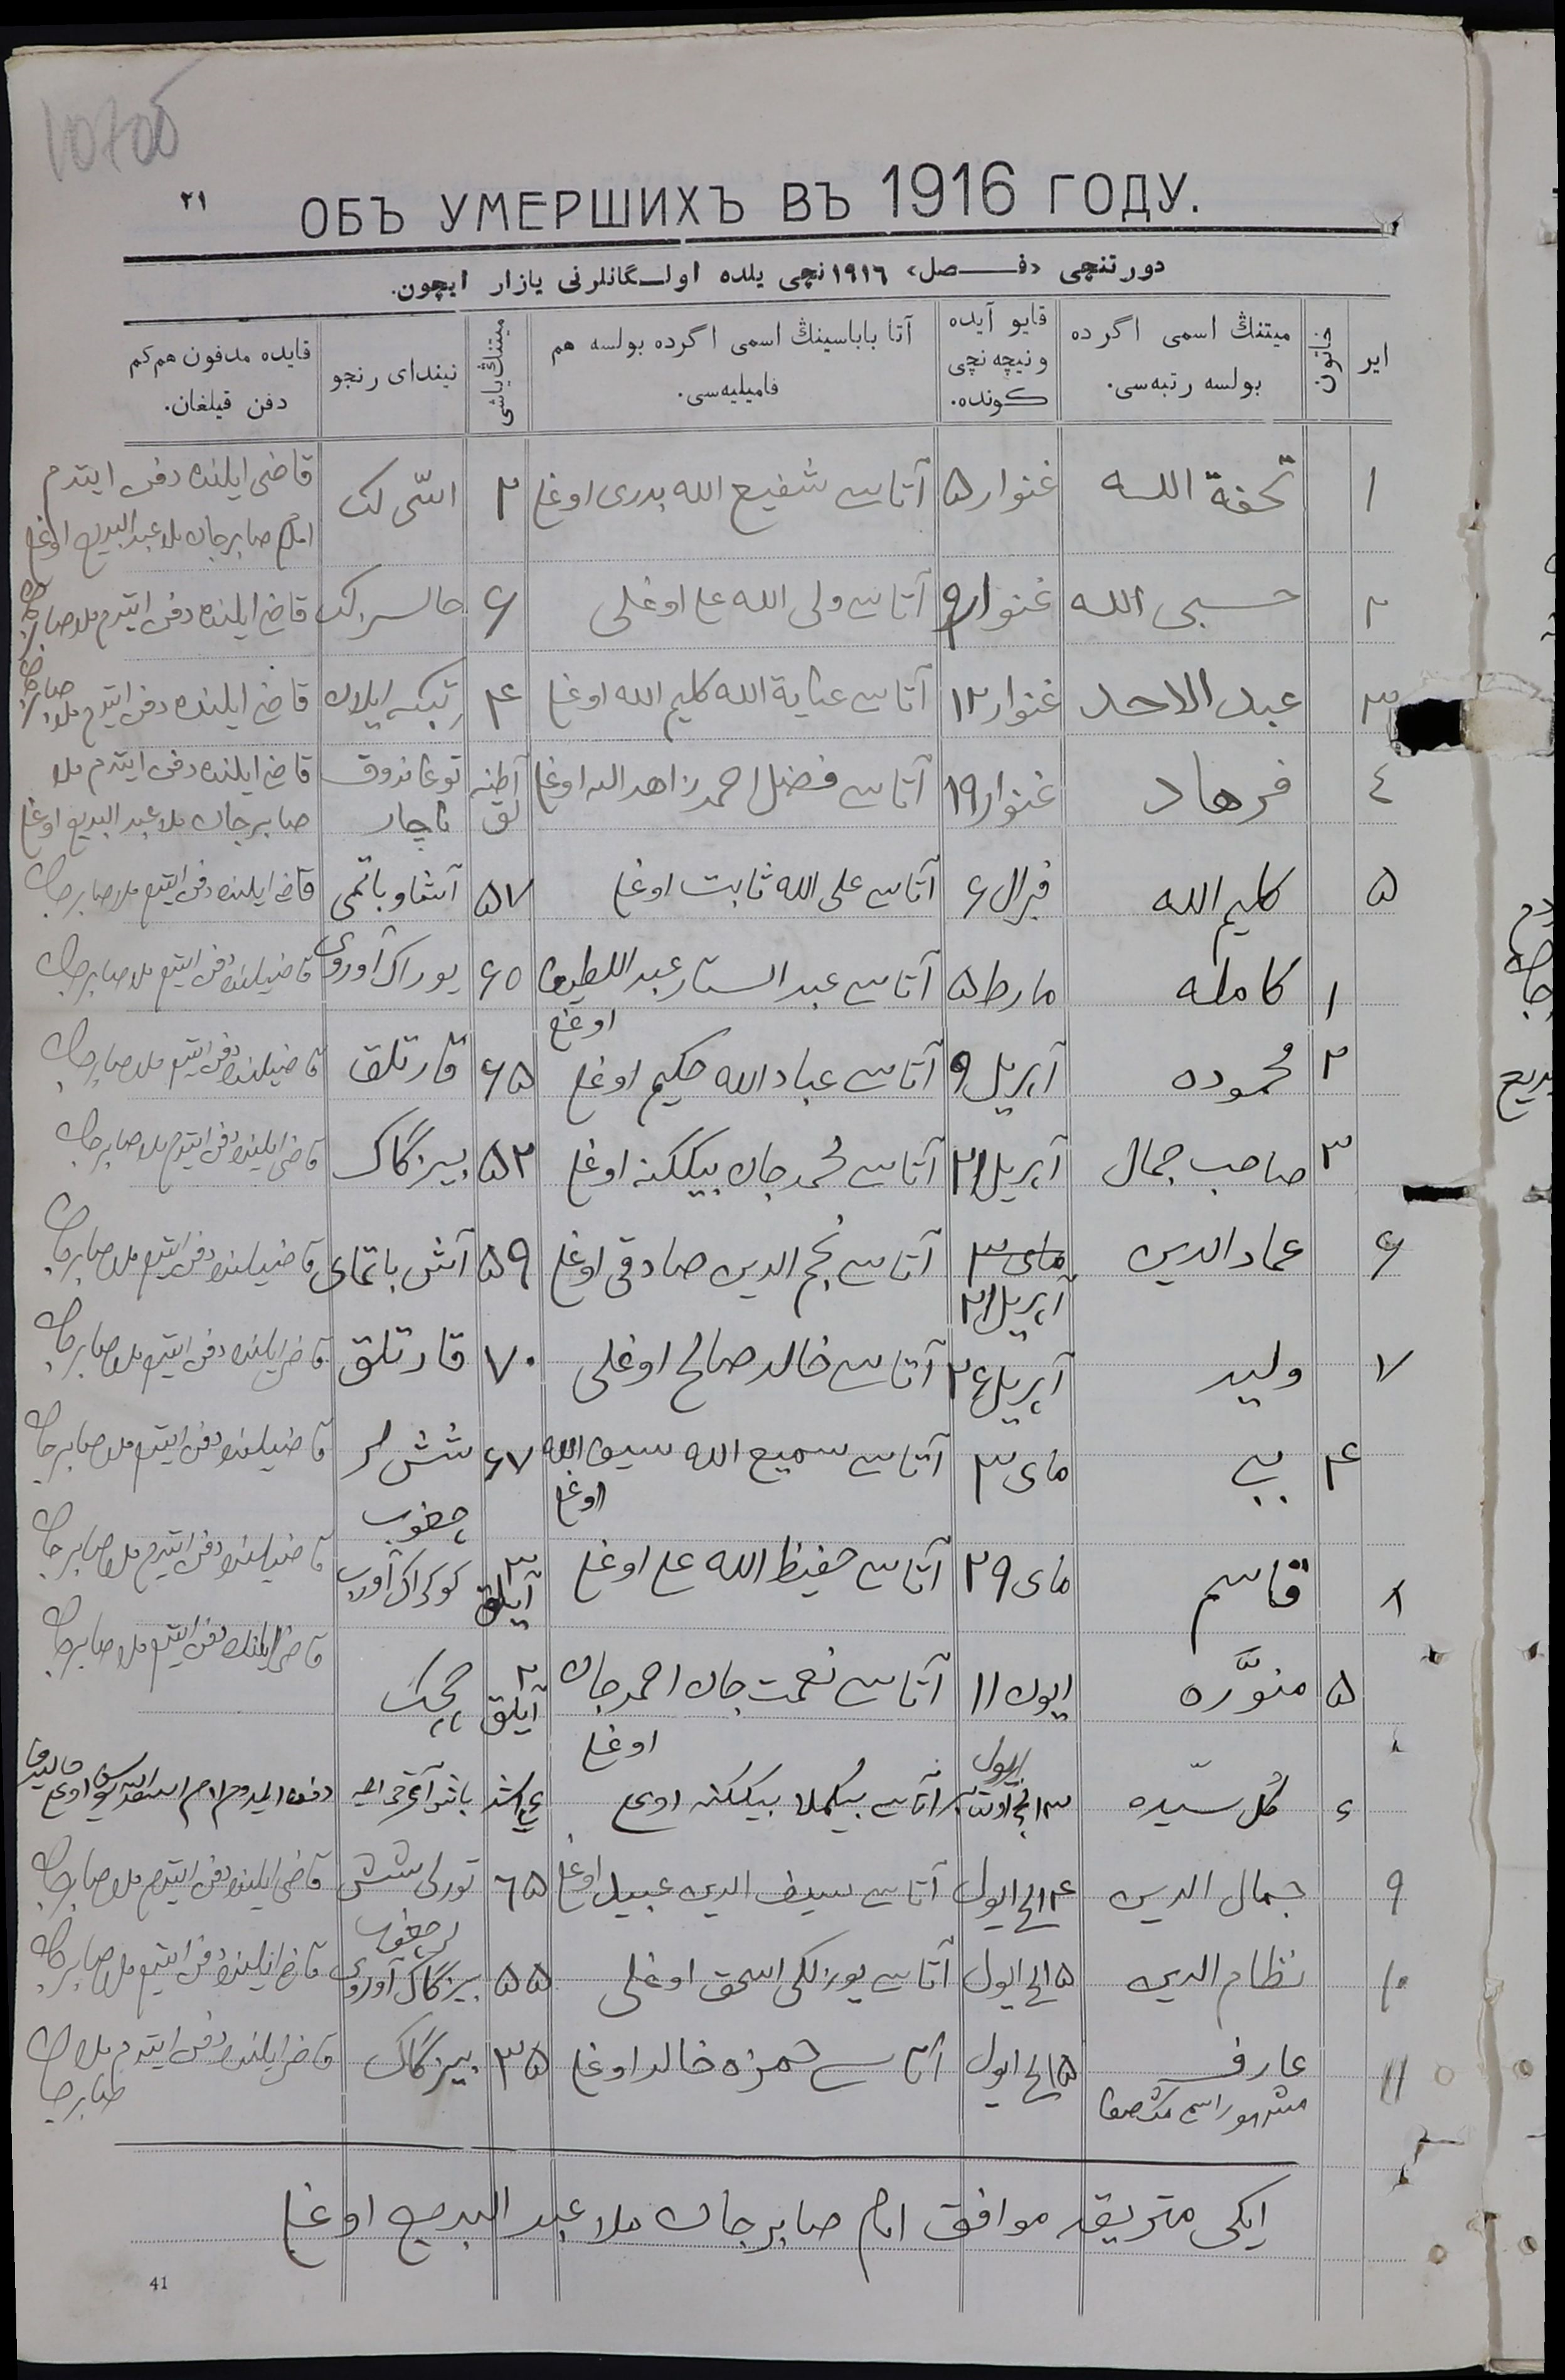 ٢١
ОБЪ УМЕРШИХЪ ВЪ 1916 ГОДУ.
دورتنچی «فـصل» ١٩١٦نچی یلده اولـگانلرنی یازار ایچون.
ایر
خاتون
میتنڭ اسمی اگرده بولسه رتبه‌سی.
قایو آیده ونیچه نچی کونده.
آتا باباسینڭ اسمی اگرده بولسه هم فامیلیه‌سی.
میتنڭ یاشی
نیندای رنجو
قایده مدفون هم‌کم دفن قیلغان.
١ تحفة الله غنوار ۵ آتاسی شفیع الله بدری اوغلی ٢ قاضی ایلنده دفن ایتدم
امام صابرجان ملا عبد البدیع اوغلی
٢ حسبی الله غنوار ٩ آتاسی ولی الله علی اوغلی ۶ قاضی ایلنده دفن ایتدم ملا صابرجان
٣ عبد الاحد غنوار ١٢ آتاسی عنایة الله کلیم الله اوغلی ۴ قاضی ایلنده دفن ایتدم ملا صابرجان
٤ فرهاد غنوار ١٩ آتاسی فضل احمد زاهد الله اوغلی آطنه لق توغاندوق ناچار قاضی ایلنده دفن ایتدم ملا
صابرجان ملا عبد البدیع اوغلی
۵ کلیم الله فبرال ۶ آتاسی علی الله ثابت اوغلی ۵٧ قاضی ایلنده دفن ایتدم ملا صابرجان
١ کامله مارط ۵ آتاسی عبد الستار عبد اللطیف اوغلی ۶٥ یوراک آوروی قاضیلنده دفن ایتدم ملا صابرجان
٢ محموده آپریل ٩ آتاسی عباد الله حکیم اوغلی ۶۵ قارتلق قاضیلنده دفن ایتدم ملا صابرجان
٣ صاحب جمال آپریل ٢١ آتاسی محمد جان بیککنه اوغلی ۵٢ بیزگاک قاضی ایلنده دفن ایتدم ملا صابرجان
۶ عماد الدین مای ٣ آپریل ٢١ آتاسی نجم الدین صادقی اوغلی ۵٩ آش باتمای قاضیلنده دفن ایتدم ملا صابرجان
٧ ولید آپریل ٢۶ آتاسی خالد صالح اوغلی ٧٠ قارتلق قاضی ایلنده دفن ایتدم ملا صابرجان
۴ بی‌بی مای ٣ آتاسی سمیع الله سیف الله اوغلی ۶٧ شش لر چغوب قاضیلنده دفن ایتدم ملا صابرجان
٨ قاسم مای ٢٩ آتاسی حفیظ الله علی اوغلی ٣ آیلق قاضیلنده دفن ایتدم ملا صابرجان
۵ منوّره ایون ١١ آتاسی نعمت جان احمد جان اوغلی ٢ آیلق چچک قاضی ایلنده دفن ایتدم ملا صابرجان
۶ گل سیّده ایول آتاسی بیکملا بیککنه اوغلی
٩ جمال الدین ١۴نچی ایول آتاسی سیف الدین عبید اوغلی ٦۵ تورلی شش لر چغوب قاضی ایلنده دفن ایتدم ملا صابرجان
١٠ نظام الدین ١۵نچی ایول آتاسی یوزلکی اسحق اوغلی ۵۵ بیزگاک آوروی قاضی ایلنده دفن ایتدم ملا صابرجان
١١ عارف ١۵نچی ایول آتاسی حمزه خالد اوغلی ٣۵ بیزگاک قاضی ایلنده دفن ایتدم ملا صابرجان
ایکی متریقه موافق امام صابرجان ملا عبد البدیع اوغلی
41